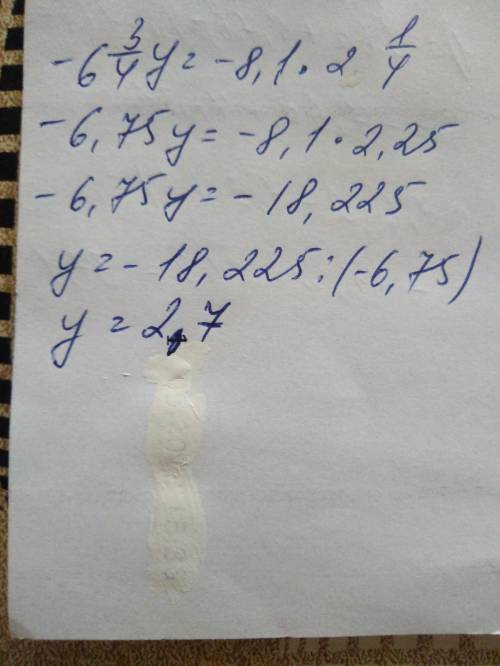 -6 3/4 y = -8,1 · 2 1/4
-6,75y = -8,1 · 2,25
-6,75y = -18,225
y = -18,225 : (-6,75)
y = 2,7